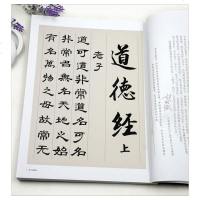 道德經上
老子
道可道非常道名可名
非常名無名天地之始
有名萬物之母故常無